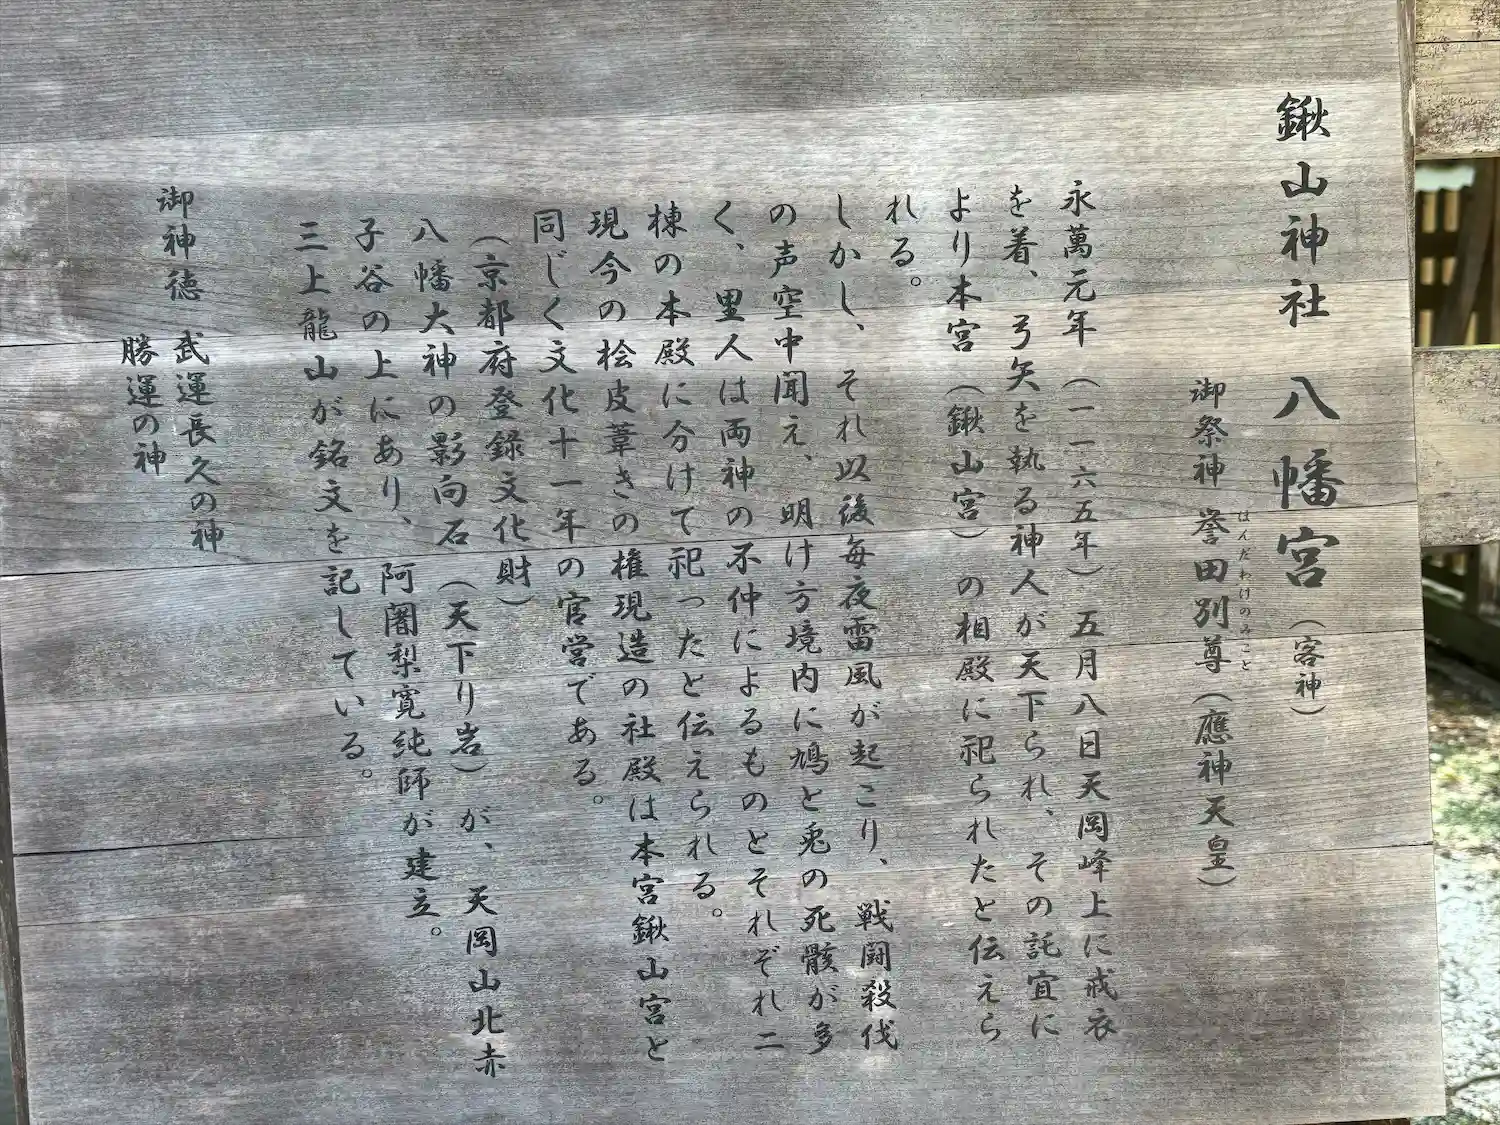 鍬山神社 八幡宮(客神)
御祭神 誉田別尊(應神天皇)
はんだわけのみこと
永萬元年(一一六五年)五月八日天岡峰上に戒衣
を着、弓矢を執る神人が天下られ、その託宜に
より本宮(鍬山宮)の相殿に祀られたと伝えら
れる。
しかし、それ以後毎夜雷風が起こり、戦闘殺伐
の声空中聞え、明け方境内に鳩と兎の死骸が多
く、里人は両神の不仲によるものとそれぞれ二
棟の本殿に分けて祀ったと伝えられる。
現今の桧皮葺きの権現造の社殿は本宮鍬山宮と
同じく文化十一年の官営である。
(京都府登録文化財)
八幡大神の影向石(天下り岩)が、天岡山北赤
子谷の上にあり、阿闍梨寛純師が建立。
三上龍山が銘文を記している。
御神徳 武運長久の神
勝運の神